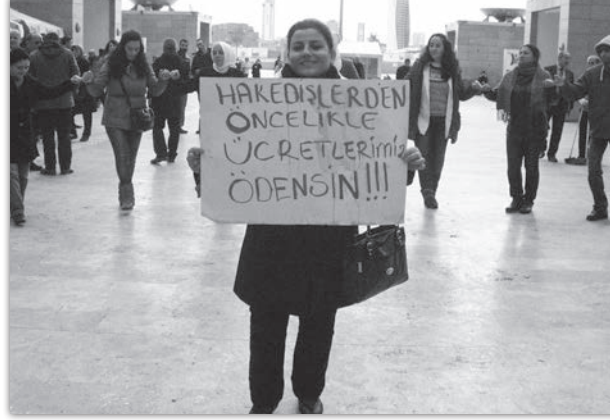 HAKEDİŞLERDEN
ÖNCELİKLE
ÜCRETLERİMİZ
ÖDENSİN!!!